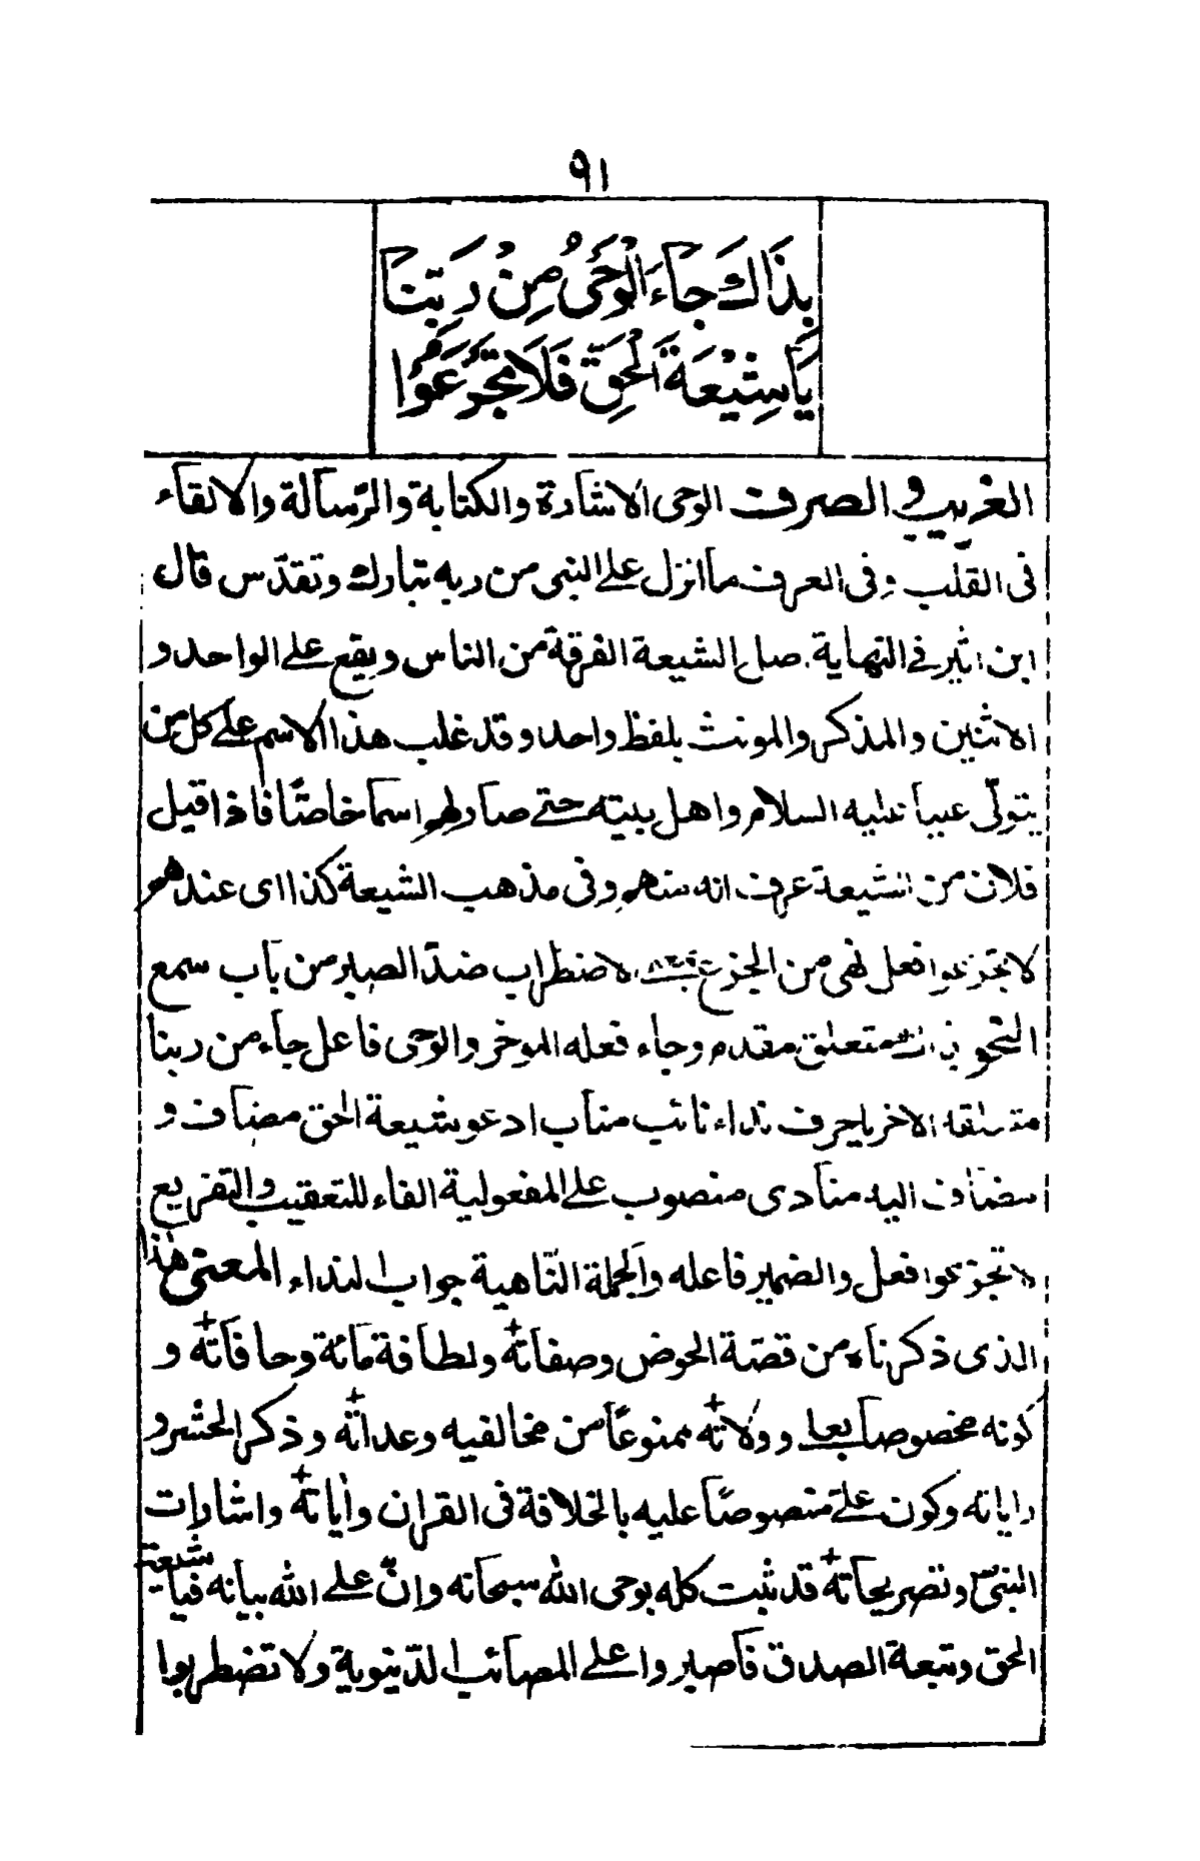 ٩١
بِذَاكَ جَاءَ الْوَحْىُ مِنْ رَبِّنَا
يَا شِيْعَةَ الْحَقِّ فَلَا تَجْزَعُوْا
الغريب فى الصرف الوحى الاشارة والكتابة والرّسالة والالقاء
فى القلب وفى العرف ما انزل على النبى من ربه تبارك وتقدّس قال
ابن اثير فى النهاية اصل الشيعة الفرقة من الناس ويقع على الواحد و
الاثنين والمذكر والمونث بلفظ واحد وقد غلب هذا الاسم على كل من
يتولّى عليا عليه السلام واهل بيته حتى صار لهم اسما خاصّا فاذا قيل
فلان من الشيعة عرف انه منهم وفى مذهب الشيعة كذا اى عندهم
لا تجزعوا فعل نهى من الجزع الاضطراب ضدّ الصبر من باب سمع
النحو بذاك متعلق مقدم وجاء فعله الموخر والوحى فاعل جاء من ربنا
متعلقه الاخر يا حرف نداء نائب مناب ادعو شيعة الحق مضاف و
مضاف اليه منادى منصوب على المفعولية الفاء للتعقيب والتفريع
لا تجزعوا فعل والضمير فاعله والجملة النّاهية جواب النداء المعنى هذا
الذى ذكرناه من قصّة الحوض وصفاته ولطافة مائة وحافاته و
كونه مخصوصا بعلى وولاته ممنوعًا من مخالفيه وعداته وذكر الحشر و
راياته وكون علىّ منصوصًا عليه بالخلافة فى القران واٰياته واشارات
النبىّ وتصريحاته قد ثبت كله بوحى اللّٰه سبحانه وانّ على اللّٰه بيانه فيا شيعة
الحق وتبعة الصدق فاصبروا على المصائب الدّنيوية ولا تضطربوا